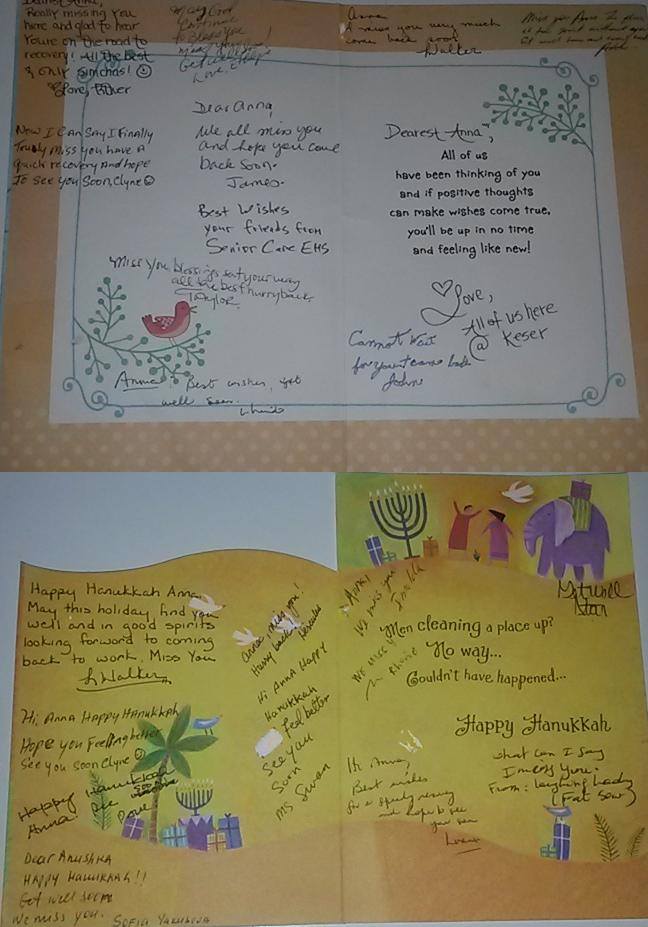 Dearest Anna,
Really missing you
here and glad to hear
You're on the road to
recovery! All the best
& only simchas!
Love,
May God
Continue
to Bless you
Get well
Love,
Anna
I miss you very much
come back soon
LWalker
Miss you Anna
Now I Can Say I Finally
Truly Miss you have a
quick recovery And hope
To see you Soon, Clyne
Dear Anna,
We all miss you
and hope you come
back soon.
James.
Best Wishes
your friends from
Senior Care EHS
Miss you blessings sent your way
all the best hurry back,
Taylor.
Anna: Best wishes, get
well soon.
Dearest Anna,
All of us
have been thinking of you
and if positive thoughts
can make wishes come true,
you'll be up in no time
and feeling like new!
Love,
All of us here
@ Keser
Cannot Wait
for you to come back
John
Happy Hanukkah Anna
May this holiday find you
well and in good spirits
looking forward to coming
back to work. Miss You
LWalker
Hi, Anna Happy Hanukkah
Hope you Feeling better
See you soon Clyne
Happy Hanukkah
Anna!
Love
Dear Anushka
Happy Hanukkah!!
Get well soon
We miss you. Sofia
Anna miss you!
Hurry back!
Hi Anna Happy
Hanukkah
feel better
See you
Soon
Ms Swan
Anna,
We miss you
We miss you
Men cleaning a place up?
No way...
Couldn't have happened...
Happy Hanukkah
Hi, Anna,
Best wishes
for a speedy recovery
and hope to see
you soon
What can I say
I miss you:
From: laughing lady